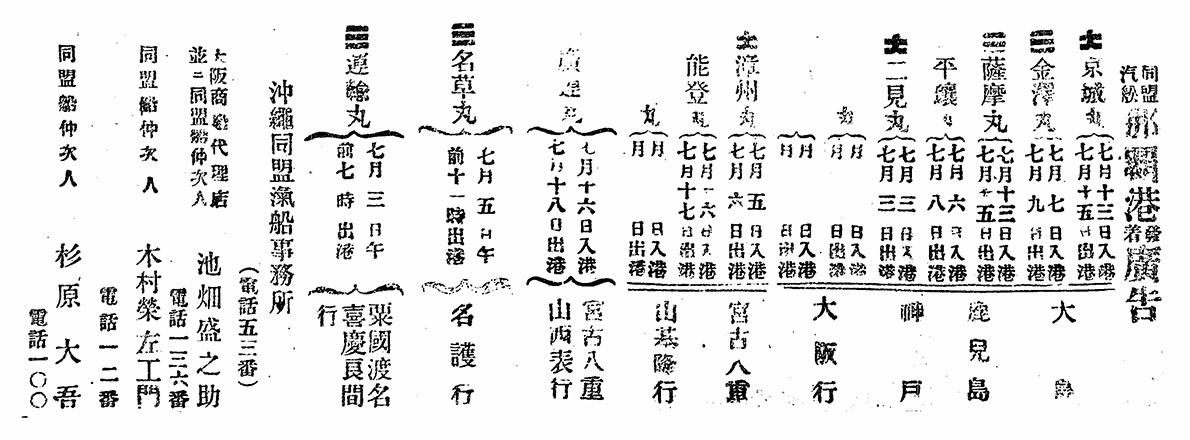 同盟汽船那覇港發着廣告
京城丸
七月十三日入港
七月十五日出港
金澤丸
七月七日入港
七月九日出港
薩摩丸
七月十三日入港
七月十五日出港
平壤丸
七月六日入港
七月八日出港
二見丸
七月三日入港
七月三日出港
丸
月 日入港
月 日出港
月 日入港
月 日出港
大島
鹿兒島
神戸
大阪行
漳州丸
七月五日入港
七月六日出港
能登丸
七月十六日入港
七月十七日出港
丸
月 日入港
月 日出港
宮古八重
山基隆行
丸
七月十六日入港
七月十八日出港
宮古八重
山西表行
名草丸
七月五日午
前十一時出港
名護行
運輸丸
七月三日午
前七時出港
粟國渡名
喜慶良間
行
沖繩同盟滊船事務所
(電話五三番)
大阪商船代理店
並ニ同盟船仲次人
池畑盛之助
電話一三六番
同盟船仲次人 木村榮左工門
電話一一二番
同盟船仲次人 杉原大吾
電話一〇〇